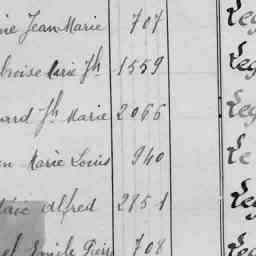 Jean Marie 707 Leg
broise Marie Jh 1559 Leg
ard Jh Marie 2066 Leg
en Marie Louis 940 Le
Alfred 2851 Leg
el Emile Pierre 708 Leg